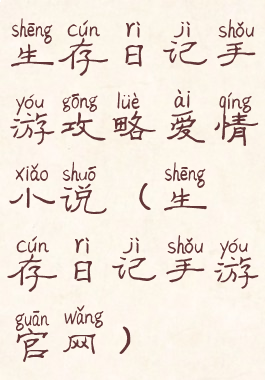 shēng cún rì jì shǒu
生存日记手
yóu gōng lüè ài qíng
游攻略爱情
xiǎo shuō shēng
小说（生
cún rì jì shǒu yóu
存日记手游
guān wǎng
官网）